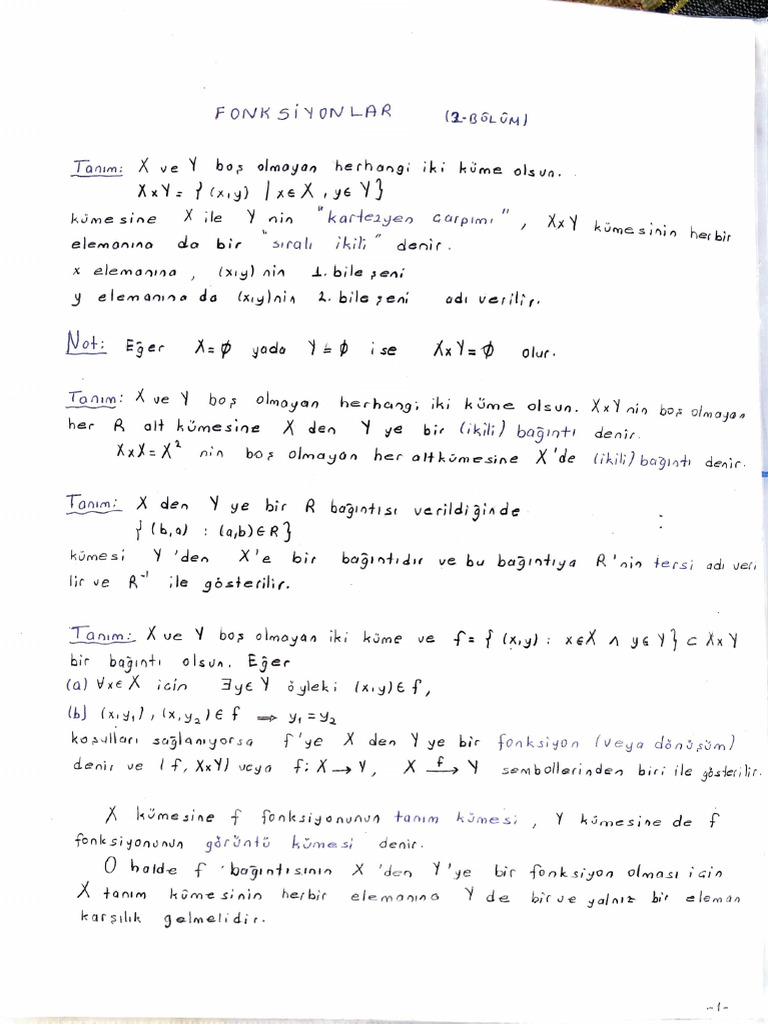 FONKSİYONLAR (2-BÖLÜM)
Tanım: X ve Y boş olmayan herhangi iki küme olsun.
XxY = { (x,y) | x∈X , y∈Y }
kümesine X ile Y nin "kartezyen çarpımı", XxY kümesinin herbir
elemanına da bir "sıralı ikili" denir.
x elemanına, (x,y) nin 1. bileşeni
y elemanına da (x,y)nin 2. bileşeni adı verilir.
Not: Eğer X=∅ yada Y=∅ ise XxY=∅ olur.
Tanım: X ve Y boş olmayan herhangi iki küme olsun. XxY nin boş olmayan
her R alt kümesine X den Y ye bir (ikili) bağıntı denir.
XxX = X² nin boş olmayan her altkümesine X'de (ikili) bağıntı denir.
Tanım: X den Y ye bir R bağıntısı verildiğinde
{ (b,a) : (a,b)∈R }
kümesi Y'den X'e bir bağıntıdır ve bu bağıntıya R'nin tersi adı veri
lir ve R⁻¹ ile gösterilir.
Tanım: X ve Y boş olmayan iki küme ve f = { (x,y) : x∈X ∧ y∈Y } ⊂ XxY
bir bağıntı olsun. Eğer
(a) ∀x∈X için ∃y∈Y öyleki (x,y)∈f,
(b) (x,y₁), (x,y₂)∈f ⟹ y₁=y₂
koşulları sağlanıyorsa f'ye X den Y ye bir fonksiyon (veya dönüşüm)
denir ve (f, XxY) veya f: X→Y, X →f Y sembollerinden biri ile gösterilir.
X kümesine f fonksiyonunun tanım kümesi, Y kümesine de f
fonksiyonunun görüntü kümesi denir.
O halde f bağıntısının X'den Y'ye bir fonksiyon olması için
X tanım kümesinin herbir elemanına Y de bir ve yalnız bir eleman
karşılık gelmelidir.
-1-